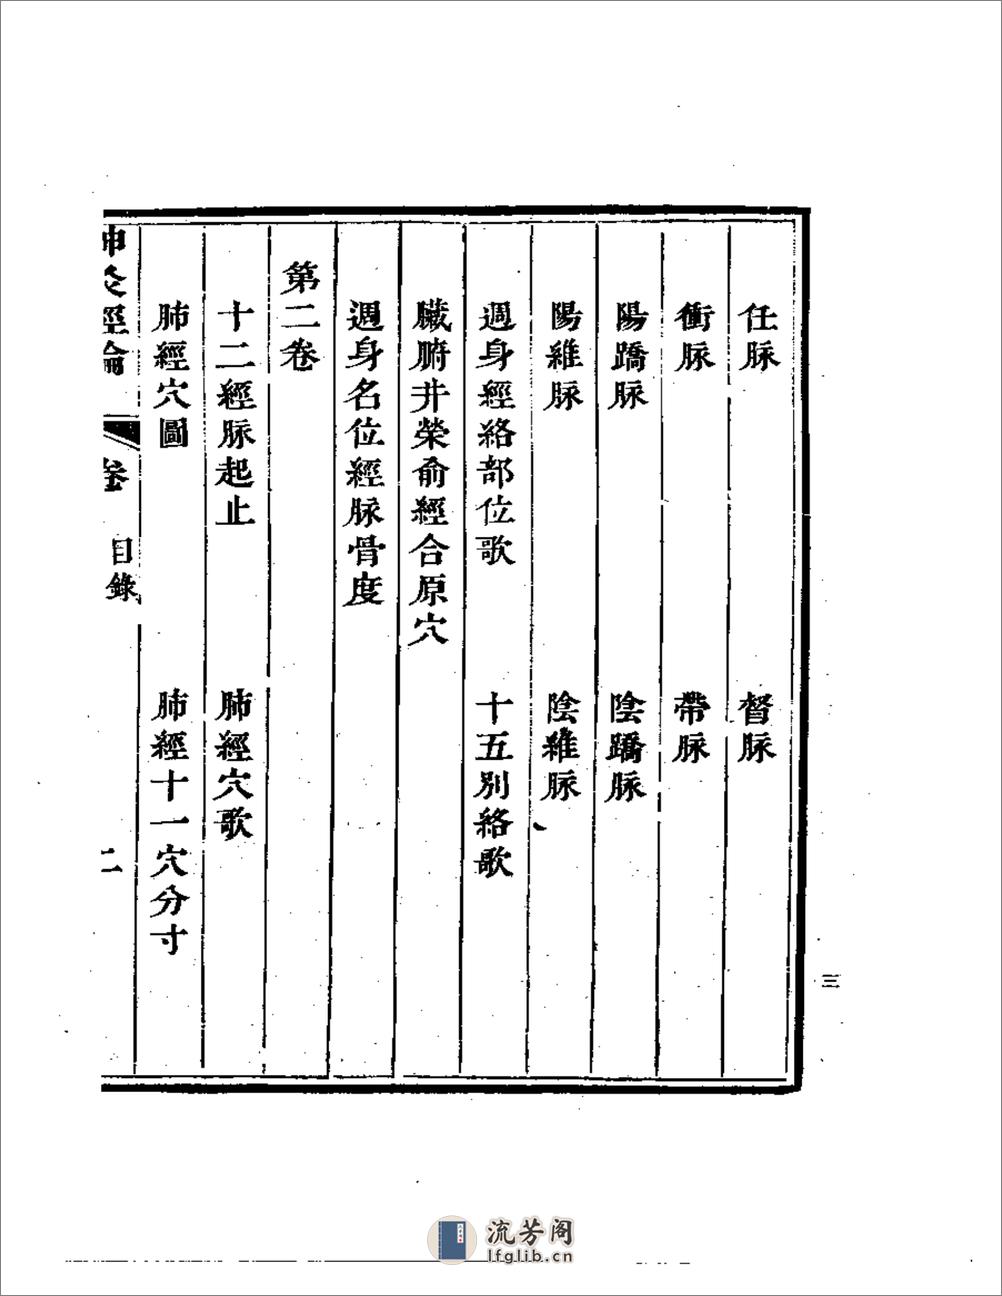 任脉　督脉
衝脉　帶脉
陽蹻脉　陰蹻脉
陽維脉　陰維脉
週身經絡部位歌　十五别絡歌
臟腑井榮俞經合原穴
週身名位經脉骨度
第二卷
十二經脉起止　肺經穴歌
肺經穴圖　肺經十一穴分寸
神灸經論　卷　目錄　二
三
流芳阁
lfglib.cn